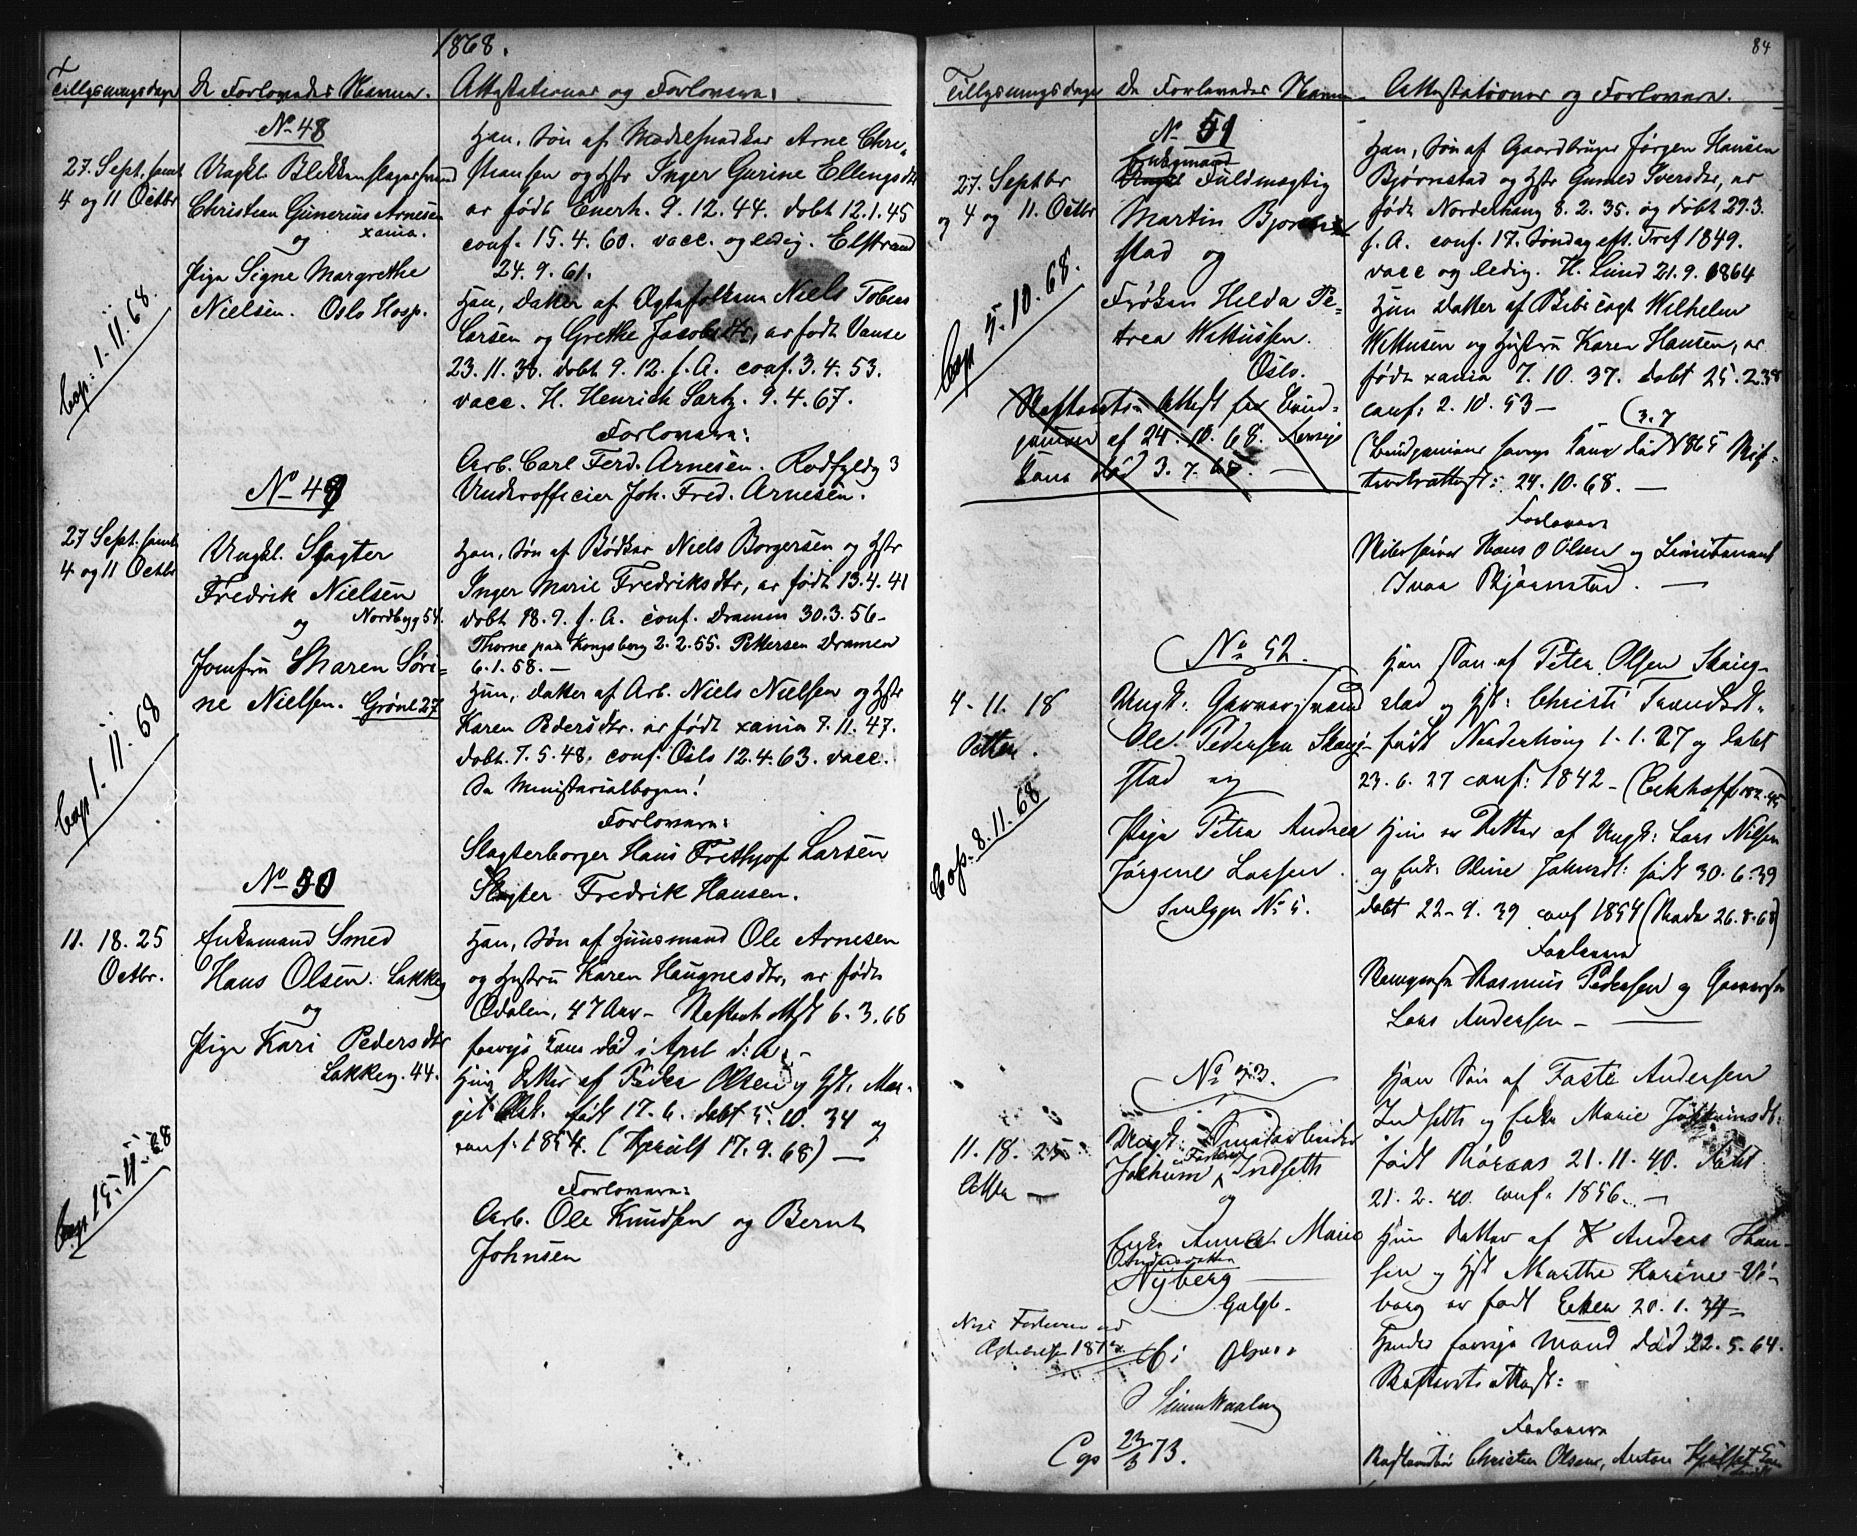 1868.
Tillysningsdage De Forlovedes Navne. Attestationer og Forlovere:
No 48
27. Sept. samt
4 og 11 Octbr
Ungkl. Blikkenslagersvend
Christian Gunerius Arnesen
xania.
og
Pige Signe Margrethe
Nielsen. Oslo Hosp.
Cop: 1. 11. 68.
Han, Søn af Arne Chri-
stiansen og Hstr Inger Gurine Ellingsdtr
er født Enerh. 9. 12. 44. døbt 12. 1. 45
conf. 15. 4. 60. vacc. og ledig. Elstrand
24. 9. 61.
Hun, Datter af Ægtefolkene Niels Tobias
Larsen og Grethe Jacobsdtr, er født Vanse
23. 11. 38. døbt 9. 12. s. A. conf. 3. 4. 53.
vacc. H. Henrich Sartz. 9. 4. 67.
Forlovere:
Arb. Carl Ferd. Arnesen. Rodfyldg 3
Underofficier Joh. Fred. Arnesen.
No 49
27 Sept. samt
4 og 11 Octbr
Ungkl. Slagter
Fredrik Nielsen
Nordbyg 54.
og
Jomfru Maren Søri-
ne Nielsen. Grønl 27
Cop 1. 11. 68
Han, Søn af Bødker Niels Borgersen og Hstr
Inger Marie Fredriksdtr, er født 13. 4. 41
døbt 18. 9. s. A. conf. Dramm 30. 3. 56-
Thorne paa Kongsberg 2. 2. 55. Pettersen Dramen
6. 1. 58. —
Hun, Datter af Arb. Niels Nielsen og Hstr
Karen Pedersdtr. er født xania 7. 11. 47.
døbt. 7. 5. 48. conf. Oslo 12. 4. 63. vacc.
Se Ministerialbogen!
Forlovere:
Slagterborger Hans Frethjof Larsen
Slagter Fredrik Hansen.
No 50
11. 18. 25
Octbr.
Enkemand Smed
Hans Olsen. Lakkeg
og
Pige Kari Pedersdtr
Lakkeg. 44.
Cop 15. 11. 68
Han, Søn af Huusmand Ole Arnesen
og Hustru Karen Haugnesdtr, er født
Odalen, 47 Aar - Skifteret Attest 6. 3. 66
forrige Kone død i April d: A. -
Hun Datter af Peder Olsen og Hst. Mar-
git Olsd. født 17. 6. døbt 5. 10. 34 og
conf. 1854. ( 17. 9. 68) —
Forlovere:
Arb. Ole Knudsen og Bernt
Johnsen
84
Tillysningsdage De Forlovedes Navne Attestationer og Forlovere.
No 51
27. Septbr
og 4 og 11. Octbr
Enkemand
Ungkl Fuldmægtig
Martin Bjørn-
stad og
Frøken Hilda Pe-
trea Wettussen.
Oslo.
Cop 5. 10. 68.
Skifterets Attest for Brud-
gommen af 24. 10. 68. forrige
Kone død 3. 7. 65. —
Han, Søn af Gaardbruger Jørgen Hansen
Bjørnstad og Hstr Gunild Iversdtr, er
født Norderhaug 8. 2. 35. og døbt 29. 3.
s. A. conf. 17. Søndag eft. Tref 1849.
vacc og ledig. H. Lund 21. 9. 1864
Hun Datter af Wilhelm
Wettusen og Hustru Karen Hansen, er
født xania 7. 10. 37. døbt 25. 2. 38
conf: 2. 10. 53 —
(3. 7
(Brudgommens forrige Kone død 1865 Skif-
teretsattest: 24. 10. 68. —
Forlovere
Hans O Olsen og Lieutenant
Ivar Bjørnstad. —
No 52.
4. 11. 18
Octbr.
Ungk: Garversvend
Ole Pedersen Skaug-
stad og
Pige Petra Andrea
Jørgine Larsen.
Smalggn No 5.
Cop. 8. 11. 68
Han Søn af Peter Olsen Skaug-
stad og Hst: Christi Trondsdt.
født Norderhoug 1. 1. 27 og døbt
23. 6. 27 conf: 1842 -
Hun er Datter af Ungk: Lars Nilsen
og Enk: Oline født 30. 6. 39
døbt 22. 9. 39 conf 1854 ( 26. 8. 68)
Forlovere
Rasmus Pedersen og Garversv
Lars Andersen —
No 53.
11. 18. 25
Octbr —
Ungk: Smedarbeider
Jochum Fosten Indseth
og
Enke Anne Marie
Andersdatter
Nyberg —
Galgb.
Nye Forlovere ved
1872.
C: Olsen
Cop 23/3 73.
Han Søn af Foste Andersen
Indseth og Enke Marie Jochumsdt:
født Røraas 21. 11. 40. døbt
21. 2. 40. conf. 1856. —
Hun Datter af Anders Han-
sen og Hst Marthe Karine Vi-
borg er født Eker 20. 1. 34
Hendes forrige Mand død 22. 5. 64.
Skifteretsattest:
Forlovere
Christian Olsen, Anton